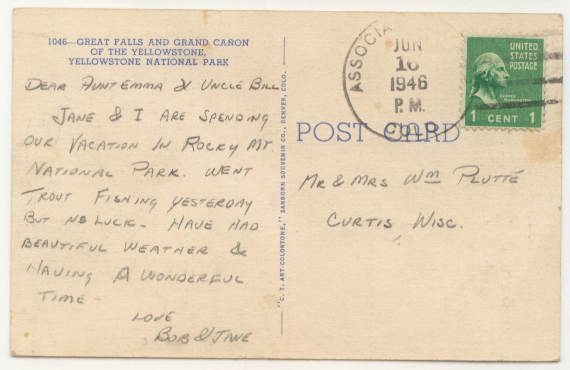 1046—GREAT FALLS AND GRAND CAÑON
OF THE YELLOWSTONE,
YELLOWSTONE NATIONAL PARK
DEAR AUNT EMMA & UNCLE BILL
JANE & I ARE SPENDING
OUR VACATION IN ROCKY MT.
NATIONAL PARK. WENT
TROUT FISHING YESTERDAY
BUT NO LUCK. HAVE HAD
BEAUTIFUL WEATHER &
HAVING A WONDERFUL
TIME -
LOVE
BOB & JANE
"C. T. ART-COLORTONE," SANBORN SOUVENIR CO., DENVER, COLO.
POST CARD
ASSOCIA
JUN
16
1946
P.M.
COLO.
UNITED
STATES
POSTAGE
1 CENT 1
MR & MRS WM PLUTTE
CURTIS WISC.